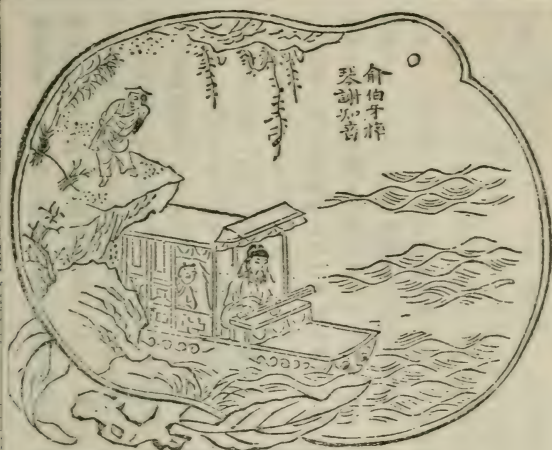 俞伯牙摔
琴謝知音